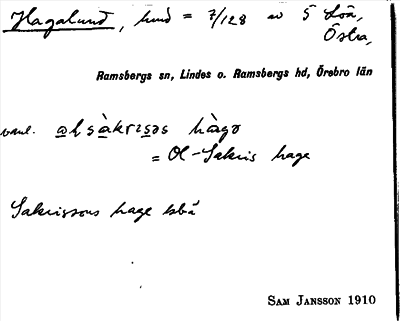 Hagalund, hmd = 7/128 av 5 Löa,
Östra,
Ramsbergs sn, Lindes o. Ramsbergs hd, Örebro län
vanl. ɷlsàkrɪsəs hàgɷ
= Ol-Sakris hage
Sakrissons hage bbä
SAM JANSSON 1910